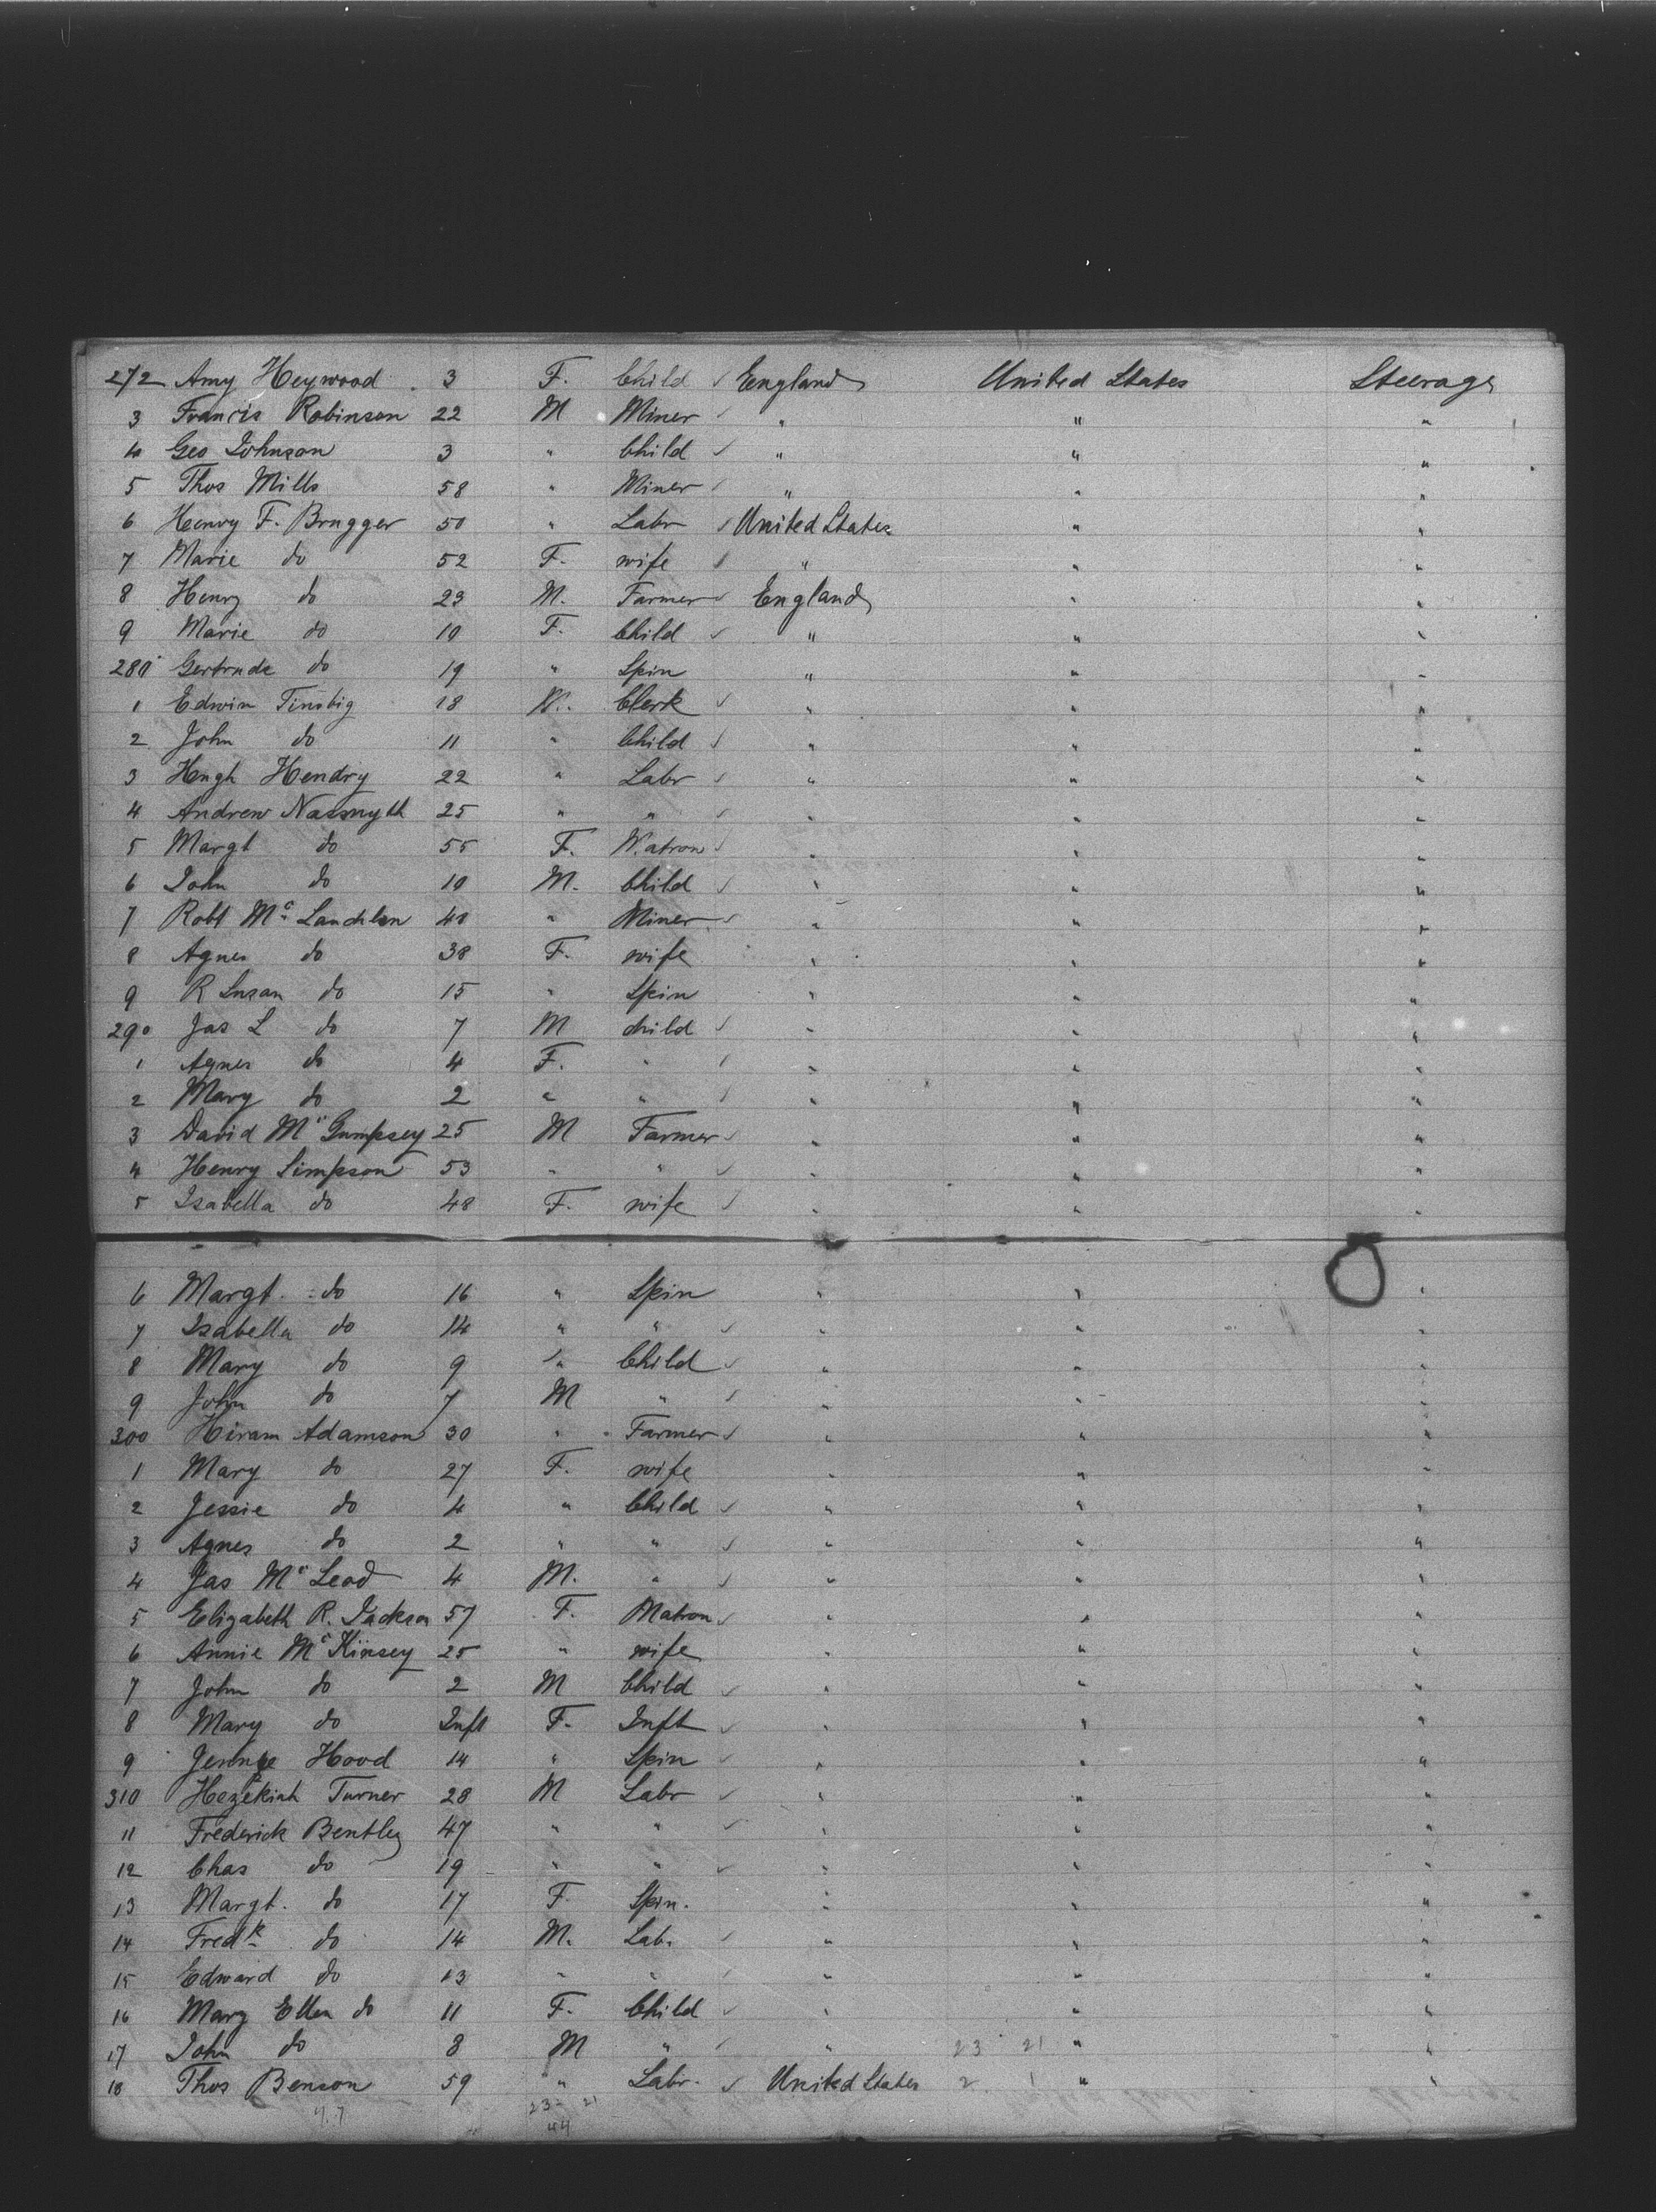 272 Amy Heywood 3 F. Child ✓ England United States Steerage
3 Francis Robinson 22 M Miner ✓ " " "
4 Geo Johnson 3 " Child ✓ " " "
5 Thos Mills 58 " Miner ✓ " " "
6 Henry F. Brugger 50 " Labr ✓ United States " "
7 Marie do 52 F. wife ✓ " " "
8 Henry do 23 M. Farmer ✓ England " "
9 Marie do 10 F. Child ✓ " " "
280 Gertrude do 19 " Spin " " "
1 Edwin 18 M. Clerk ✓ " " "
2 John do 11 " Child ✓ " " "
3 Hugh Hendry 22 " Labr ✓ " " "
4 Andrew Nasmyth 25 " " ✓ " " "
5 Margt do 55 F. Matron ✓ " " "
6 John do 10 M. Child ✓ " " "
7 Robt Mc Lauchlan 40 " Miner ✓ " " "
8 Agnes do 38 F. wife " " "
9 R Susan do 15 " Spin " " "
290 Jas L do 7 M child ✓ " " "
1 Agnes do 4 F. " ✓ " " "
2 Mary do 2 " " ✓ " " "
3 David Mc Gumpsey 25 M Farmer ✓ " " "
4 Henry Simpson 53 " " ✓ " " "
5 Isabella do 48 F. wife ✓ " " "
6 Margt. do 16 " Spin " " "
7 Isabella do 14 " " ✓ " " "
8 Mary do 9 " Child ✓ " " "
9 John do 7 M " ✓ " " "
300 Hiram Adamson 30 " Farmer ✓ " " "
1 Mary do 27 F. wife " " "
2 Jessie do 4 " Child ✓ " " "
3 Agnes do 2 " " ✓ " " "
4 Jas Mc Leod 4 M. " ✓ " " "
5 Elizabeth R. Jackson 57 F. Matron ✓ " " "
6 Annie Mc Kinsey 25 " wife " " "
7 John do 2 M Child ✓ " " "
8 Mary do Inft F. Inft ✓ " " "
9 Hood 14 " Spin ✓ " " "
310 Hezekiah Turner 28 M Labr ✓ " " "
11 Frederick Bentley 47 " " ✓ " " "
12 Chas do 19 " " ✓ " " "
13 Margt. do 17 F. Spin. " " "
14 Fredk do 14 M. Lab. ✓ " " "
15 Edward do 13 " " ✓ " " "
16 Mary Ellen do 11 F. Child ✓ " " "
17 John do 8 M " ✓ " 23 21 " "
18 Thos Benson 59 " Labr. ✓ United States 2 1 " "
23 21
44